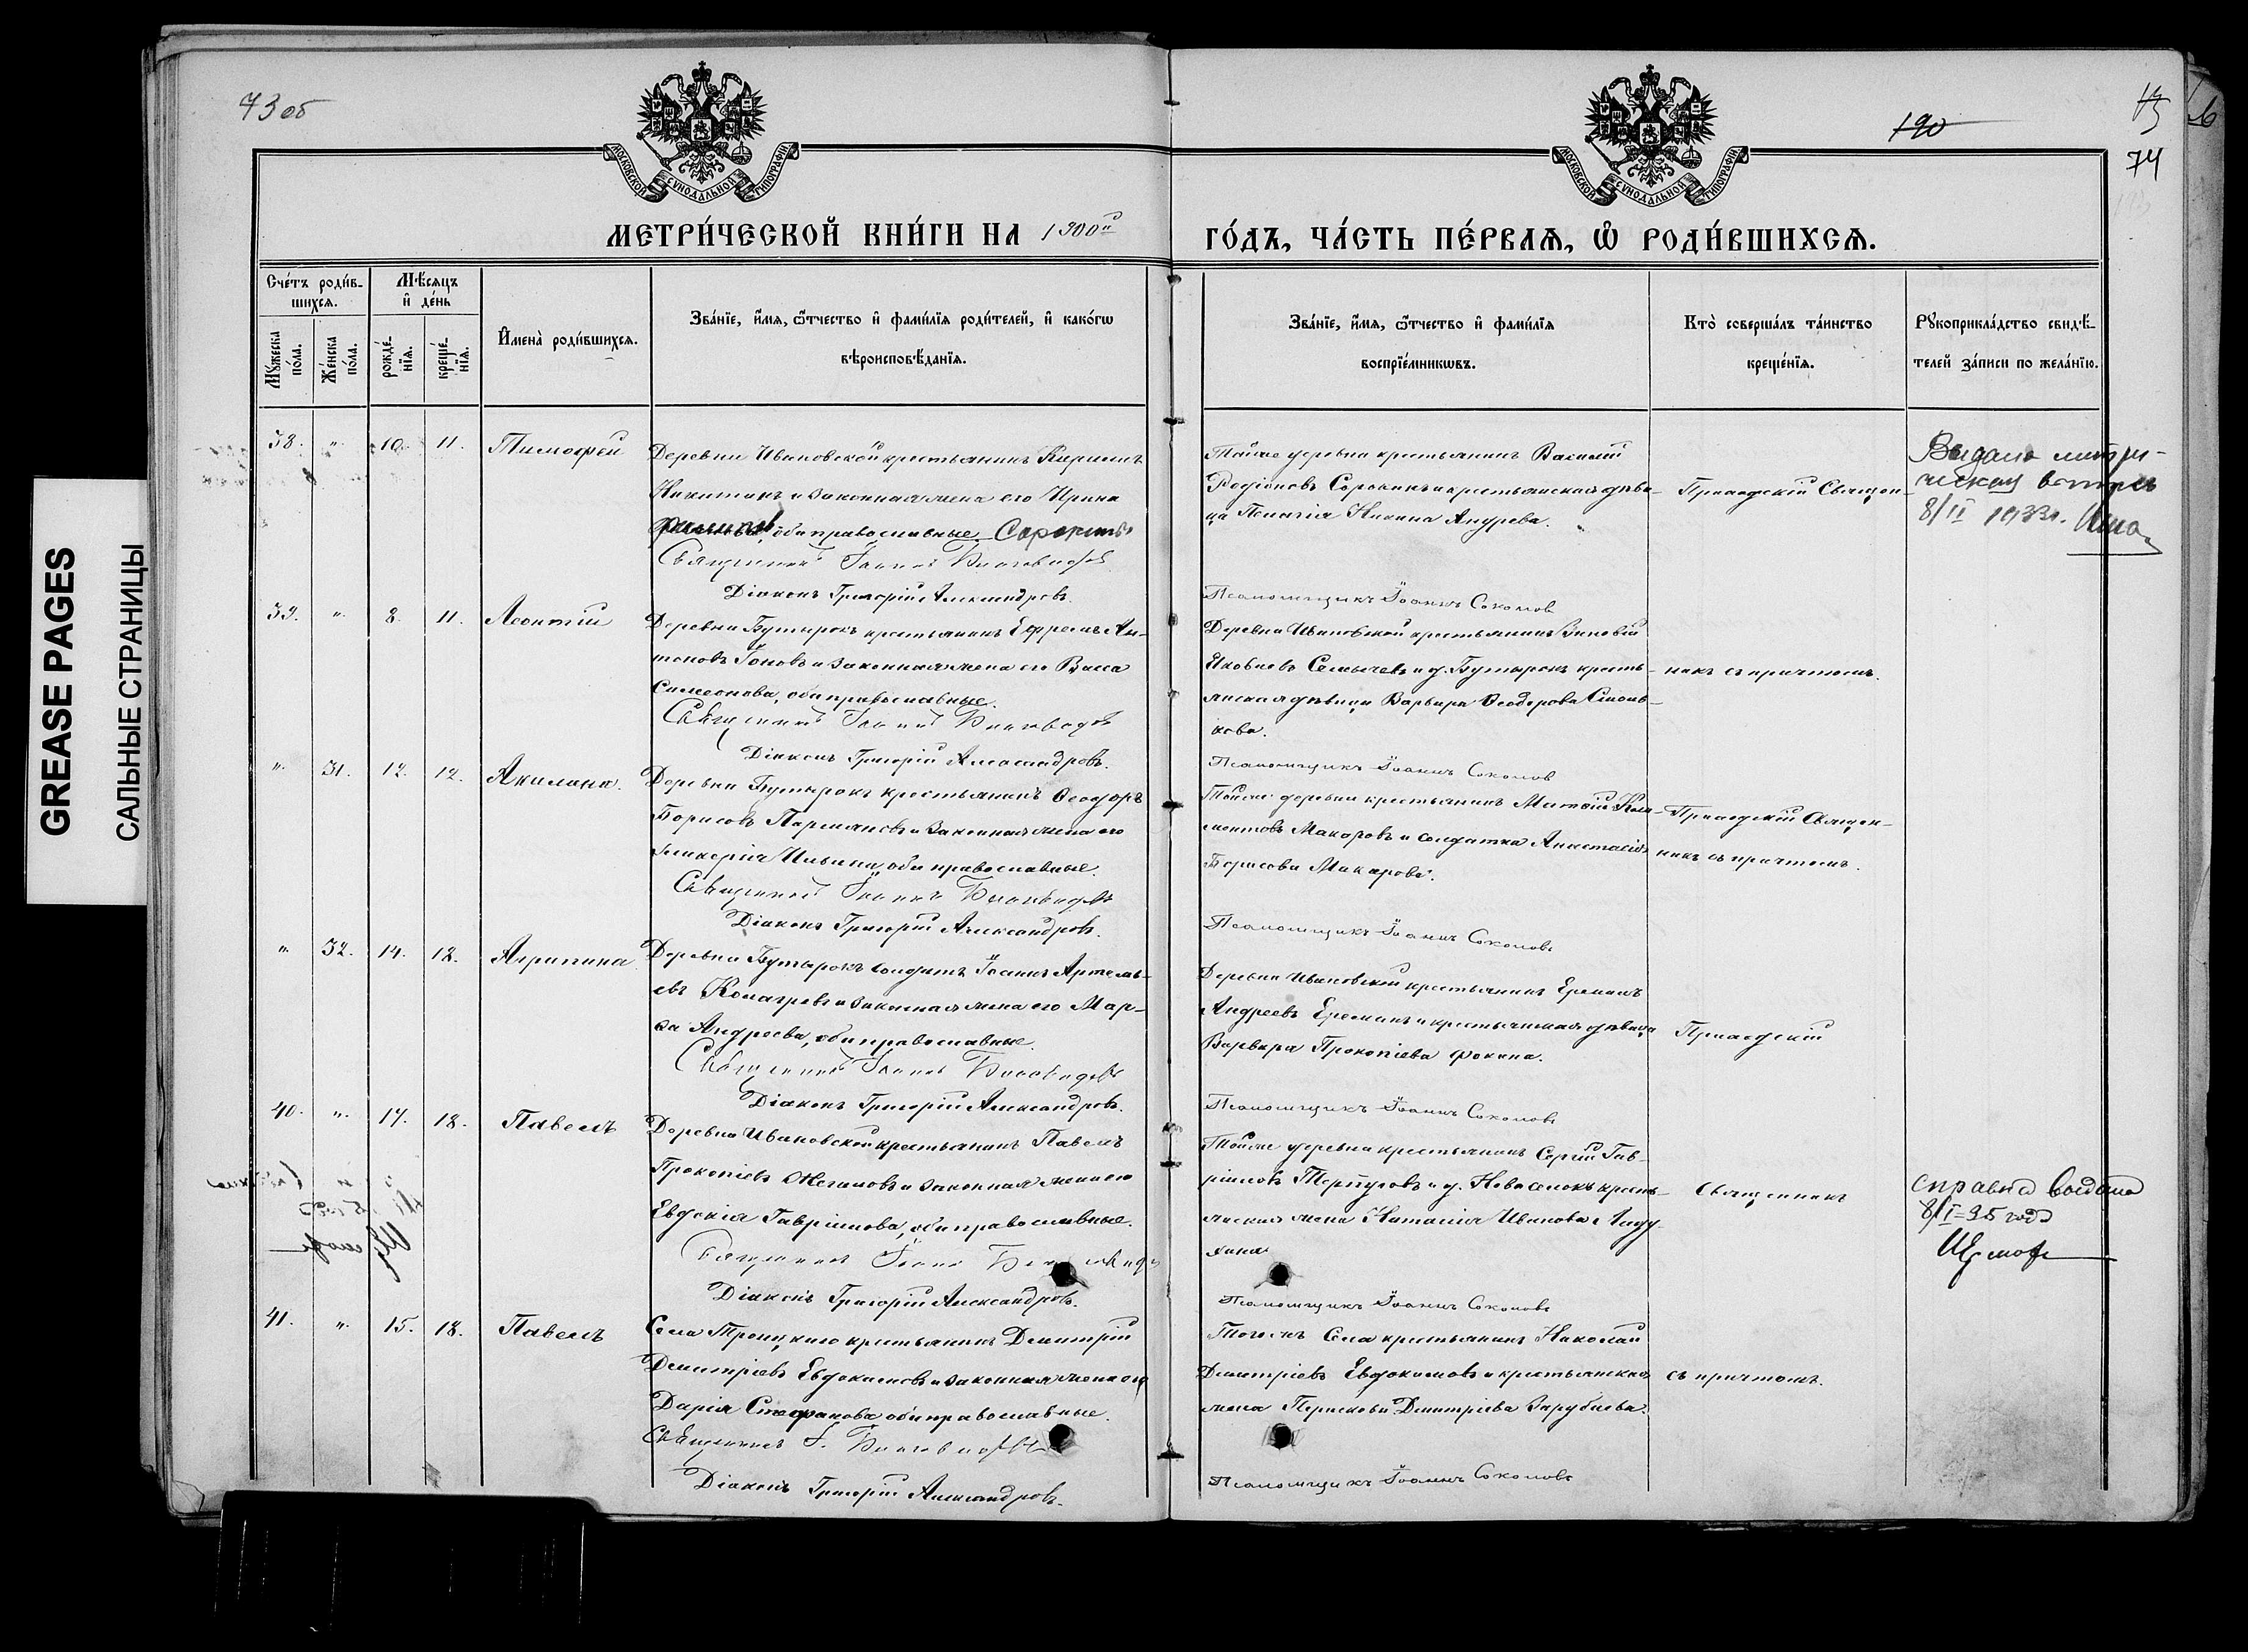 73 об
190
74
МОСКОВСКОЙ СУНОДАЛЬНОЙ ТИПОГРАФІИ
МОСКОВСКОЙ СУНОДАЛЬНОЙ ТИПОГРАФІИ
МЕТРИ́ЧЕСКОЙ КНИ́ГИ НА 1900й
ГО́ДЪ, ЧА́СТЬ ПЕ́РВАЯ, Ѡ҆ РОДИ́ВШИХСЯ.
Сче́тъ роди́в-
шихся.
Мѣ́сяцъ
и҆ де́нь
Мꙋ́жеска по́ла.
Же́нска по́ла.
рожде́-
нїя.
креще́-
нїя.
И҆мена̀ роди́вшихся.
Зва́нїе, и҆́мя, ѻ҆́тчество и҆ фами́лїя роди́телей, и҆ како́гѡ
вѣроисповѣ́данїя.
Зва́нїе, и҆́мя, ѻ҆́тчество и҆ фами́лїя
воспрїе́мникѡвъ.
Кто̀ соверша́лъ та́инство
креще́нїя.
Рꙋкоприкла́дство свидѣ́-
телей за́писи по жела́нїю.
38. " 10. 11. Тимофей
Деревни Ивановской крестьянинъ
Никитинъ и законная жена его Ирина
оба православные Сорокины
Священникъ Іоаннъ
Діаконъ Григорій Александровъ.
Тойже деревни крестьянинъ Василій
Родіоновъ Сорокинъ и крестьянская дѣви-
ца Пелагія Никина Андрева.
Псаломщикъ Іоаннъ Соколовъ
Приходскій Священ-
Выдана метри-
ческая
8/II 1933г.
39. " 8. 11. Леонтій
Деревни Бутырокъ крестьянинъ Ефремъ Ан-
тоновъ и законная жена его Васса
Симеонова, оба православные.
Священникъ Іоаннъ
Діаконъ Григорій Александровъ.
Деревни Ивановской крестьянинъ Зиновій
Яковлевъ и д. Бутырокъ кресть-
янская дѣвица Варвара Ѳеодорова
кова.
Псаломщикъ Іоаннъ Соколовъ
никъ съ причтомъ.
" 31. 12. 12. Акилина.
Деревни Бутырокъ крестьянинъ Ѳеодоръ
Борисовъ и законная жена его
Гликерія Ильина, оба православные.
Священникъ Іоаннъ
Діаконъ Григорій Александровъ.
Тойже деревни крестьянинъ Матѳій Кли-
ментовъ Макаровъ и солдатка Анастасія
Борисова Макарова.
Псаломщикъ Іоаннъ Соколовъ
Приходскій Священ-
никъ съ причтомъ.
" 32. 14. 18. Агрипина
Деревни Бутырокъ солдатъ Іоаннъ Артемь-
евъ и законная жена его Мар-
ѳа Андреева, оба православные.
Священникъ Іоаннъ
Діаконъ Григорій Александровъ.
Деревни Ивановской крестьянинъ
Андреевъ Ереминъ и крестьянская дѣвица
Варвара Прокопіева Фокина.
Псаломщикъ Іоаннъ Соколовъ
Приходскій
40. " 17. 18. Павелъ
Деревни Ивановской крестьянинъ Павелъ
Прокопіевъ и законная жена его
Евдокія Гавріилова, оба православные.
Священникъ Іоаннъ
Діаконъ Григорій Александровъ.
Тойже деревни крестьянинъ Сергій Гав-
ріиловъ и д. Новоселокъ кресть-
янская жена Наталія Иванова
Псаломщикъ Іоаннъ Соколовъ
Священникъ
справка выдана
8/I-35 года
41. " 15. 18. Павелъ
Села Троицкаго крестьянинъ Димитрій
Димитріевъ Евдокимовъ и законная жена его
Дарія Стефанова оба православные.
Священникъ І.
Діаконъ Григорій Александровъ.
Тогожъ Села крестьянинъ Николай
Димитріевъ Евдокимовъ и крестьянская
жена Параскева Димитріева Зарубнева.
Псаломщикъ Іоаннъ Соколовъ
съ причтомъ.
GREASE PAGES
САЛЬНЫЕ СТРАНИЦЫ